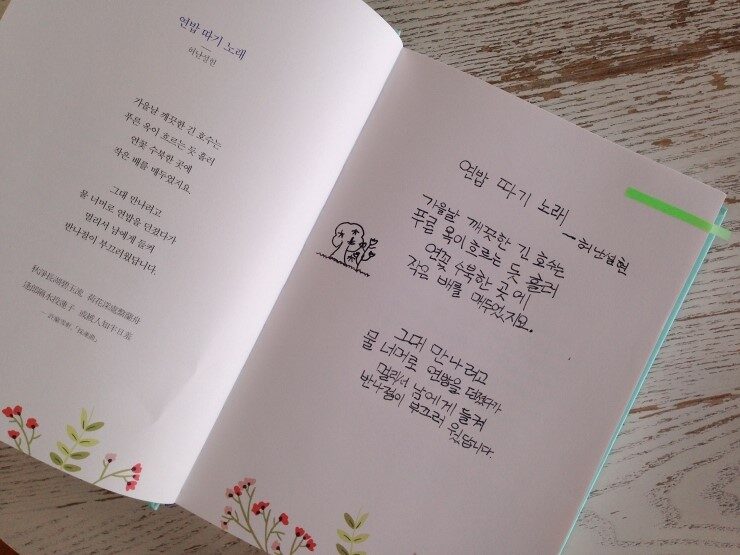 연밥 따기 노래
허난설헌
가을날 깨끗한 긴 호수는
푸른 옥이 흐르는 듯 흘러
연꽃 수북한 곳에
작은 배를 매두었지요.
그대 만나려고
물 너머로 연밥을 던졌다가
멀리서 남에게 들켜
반나절이 부끄러웠답니다.
秋淨長湖碧玉流 荷花深處繫蘭舟
逢郎隔水投蓮子 或被人知半日羞
─ 許蘭雪軒, 「採蓮曲」
연밥 따기 노래
— 허난설헌
가을날 깨끗한 긴 호수는
푸른 옥이 흐르는 듯 흘러
연꽃 수북한 곳에
작은 배를 매두었지요.
그대 만나려고
물 너머로 연밥을 던졌다가
멀리서 남에게 들켜
반나절이 부끄러웠답니다.